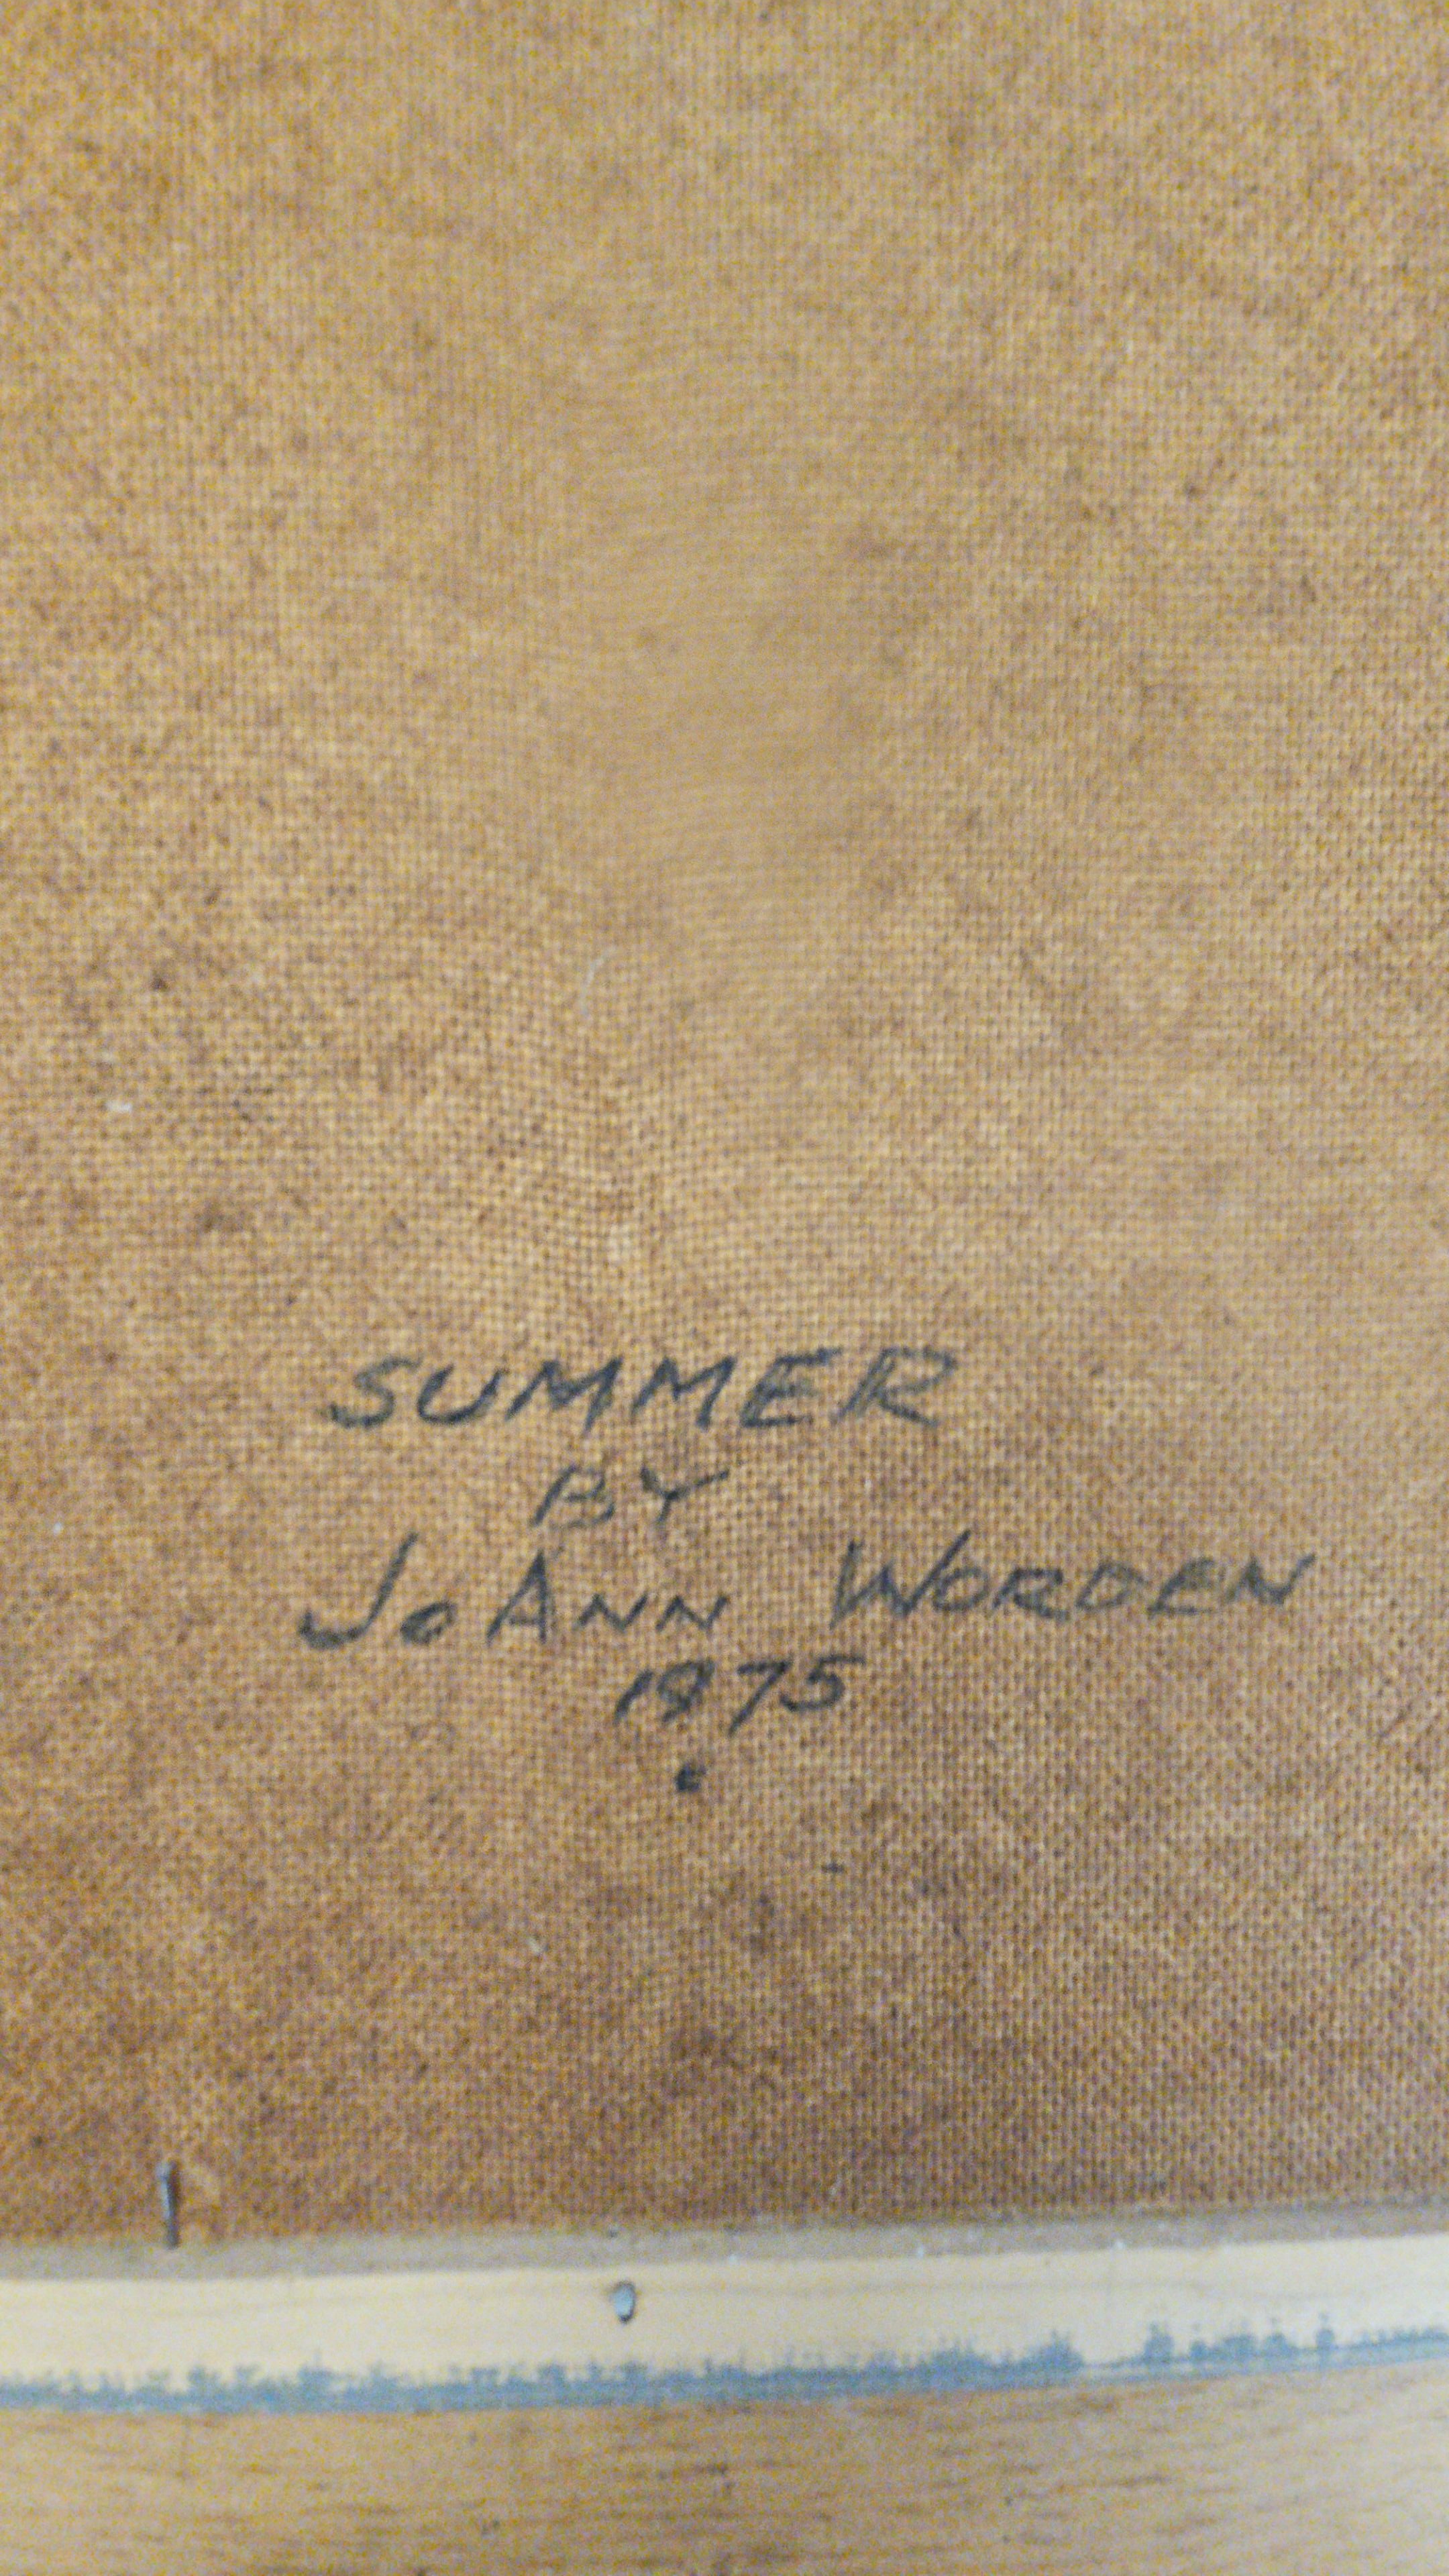 SUMMER
BY
JoANN WORDEN
1975